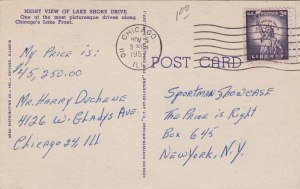 NIGHT VIEW OF LAKE SHORE DRIVE
One of the most picturesque drives along
Chicago's Lake Front.
My Price is:
$45,250.00
Mr. Harry Duchene
4126 W. Gladys Ave.
Chicago 24 Ill
CHICAGO
NOV
1957
ILL
3¢
LIBERTY
POST CARD
Sportman Showcase
The Price is Right
Box 645
New York, N.Y.